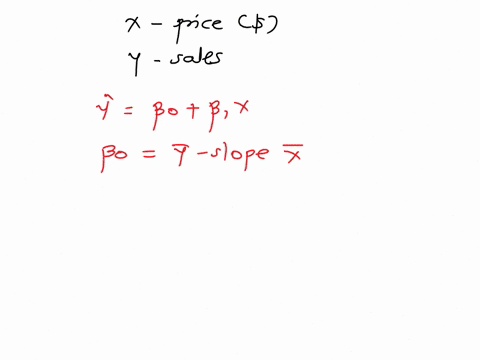 x - price ($)
y - sales
ŷ = β0 + β, x
β0 = ȳ - slope x̄